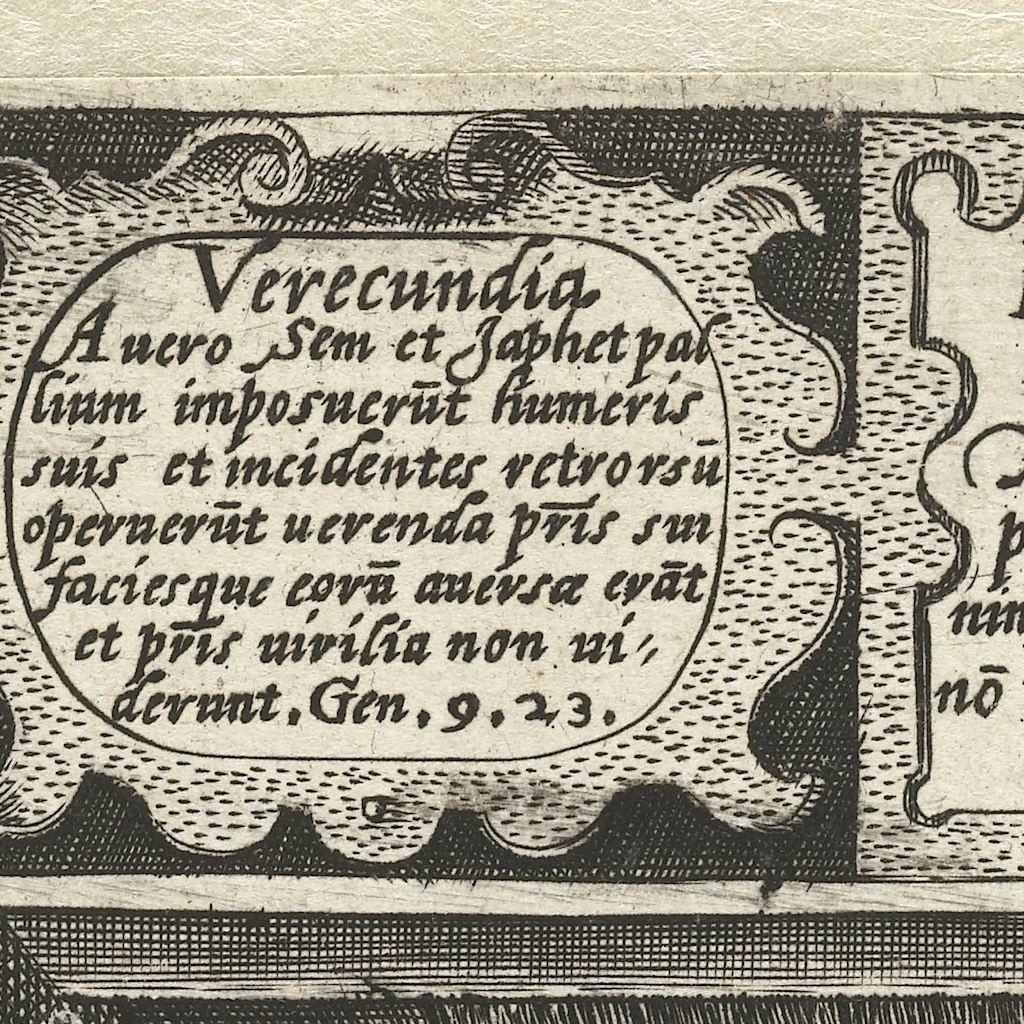 A
Verecundia.
A uero Sem et Japhet pal
lium imposuerūt humeris
suis et incidentes retrorsū
operuerūt uerenda pr̄is sui
faciesque eorū auersæ erāt
et pr̄is uirilia non ui
derunt. Gen. 9. 23.
nō